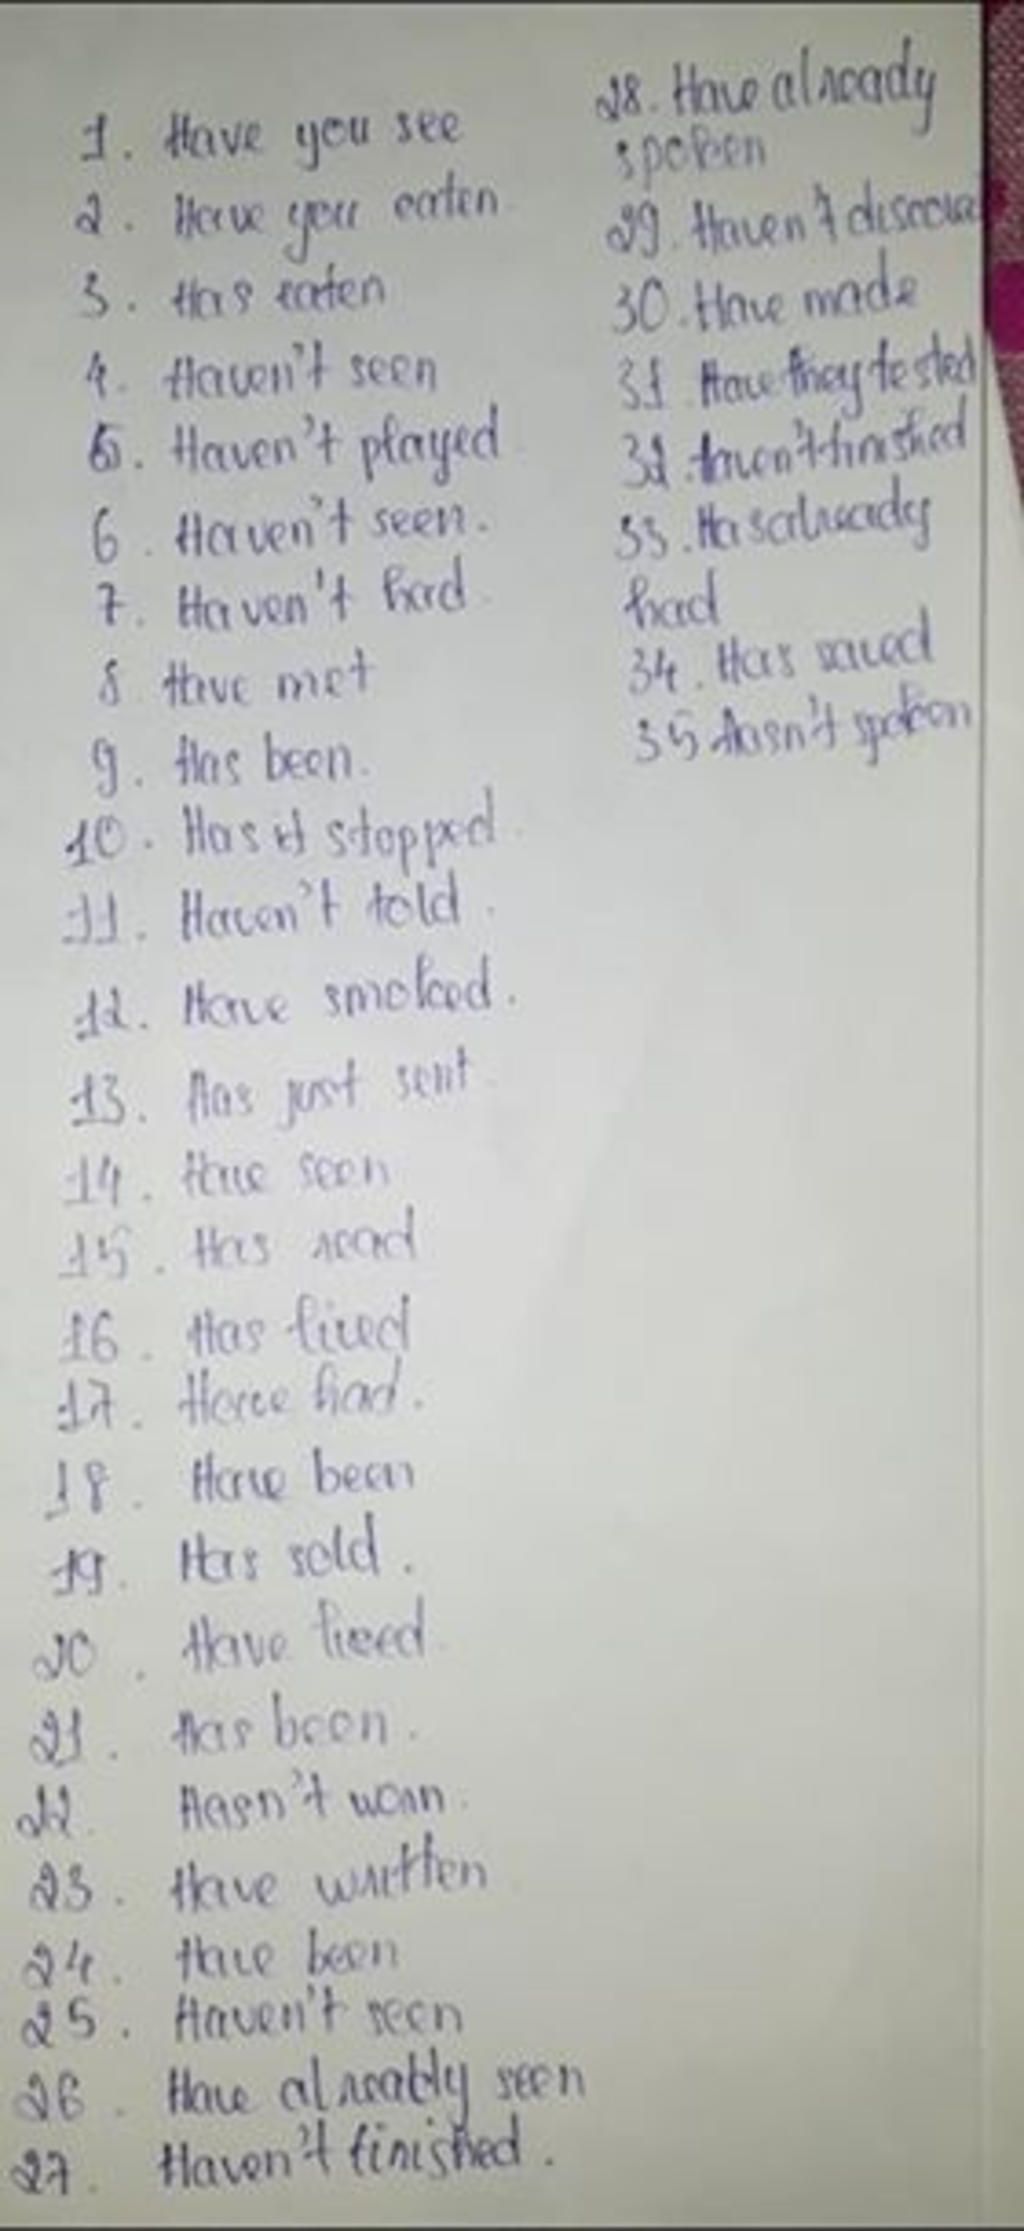 1. Have you see
2. Have you eaten
3. Has eaten
4. Haven't seen
5. Haven't played
6. Haven't seen.
7. Haven't had
8 Have met
9. Has been.
10. Has it stopped.
11. Haven't told.
12. Have smoked.
13. Has just sent.
14. Have seen
15. Has read
16. Has lived
17. Have had.
18. Have been
19. Has sold.
20. Have lived
21. Has been.
22. Hasn't won.
23. Have written
24. Have been
25. Haven't seen
26. Have alreably seen
27. Haven't finished.
28. Have already
spoken
29. Haven't
30. Have made
31 Have they tested
32. Haven't finished
33. Has already
had
34. Has saved
35 Hasn't spoken